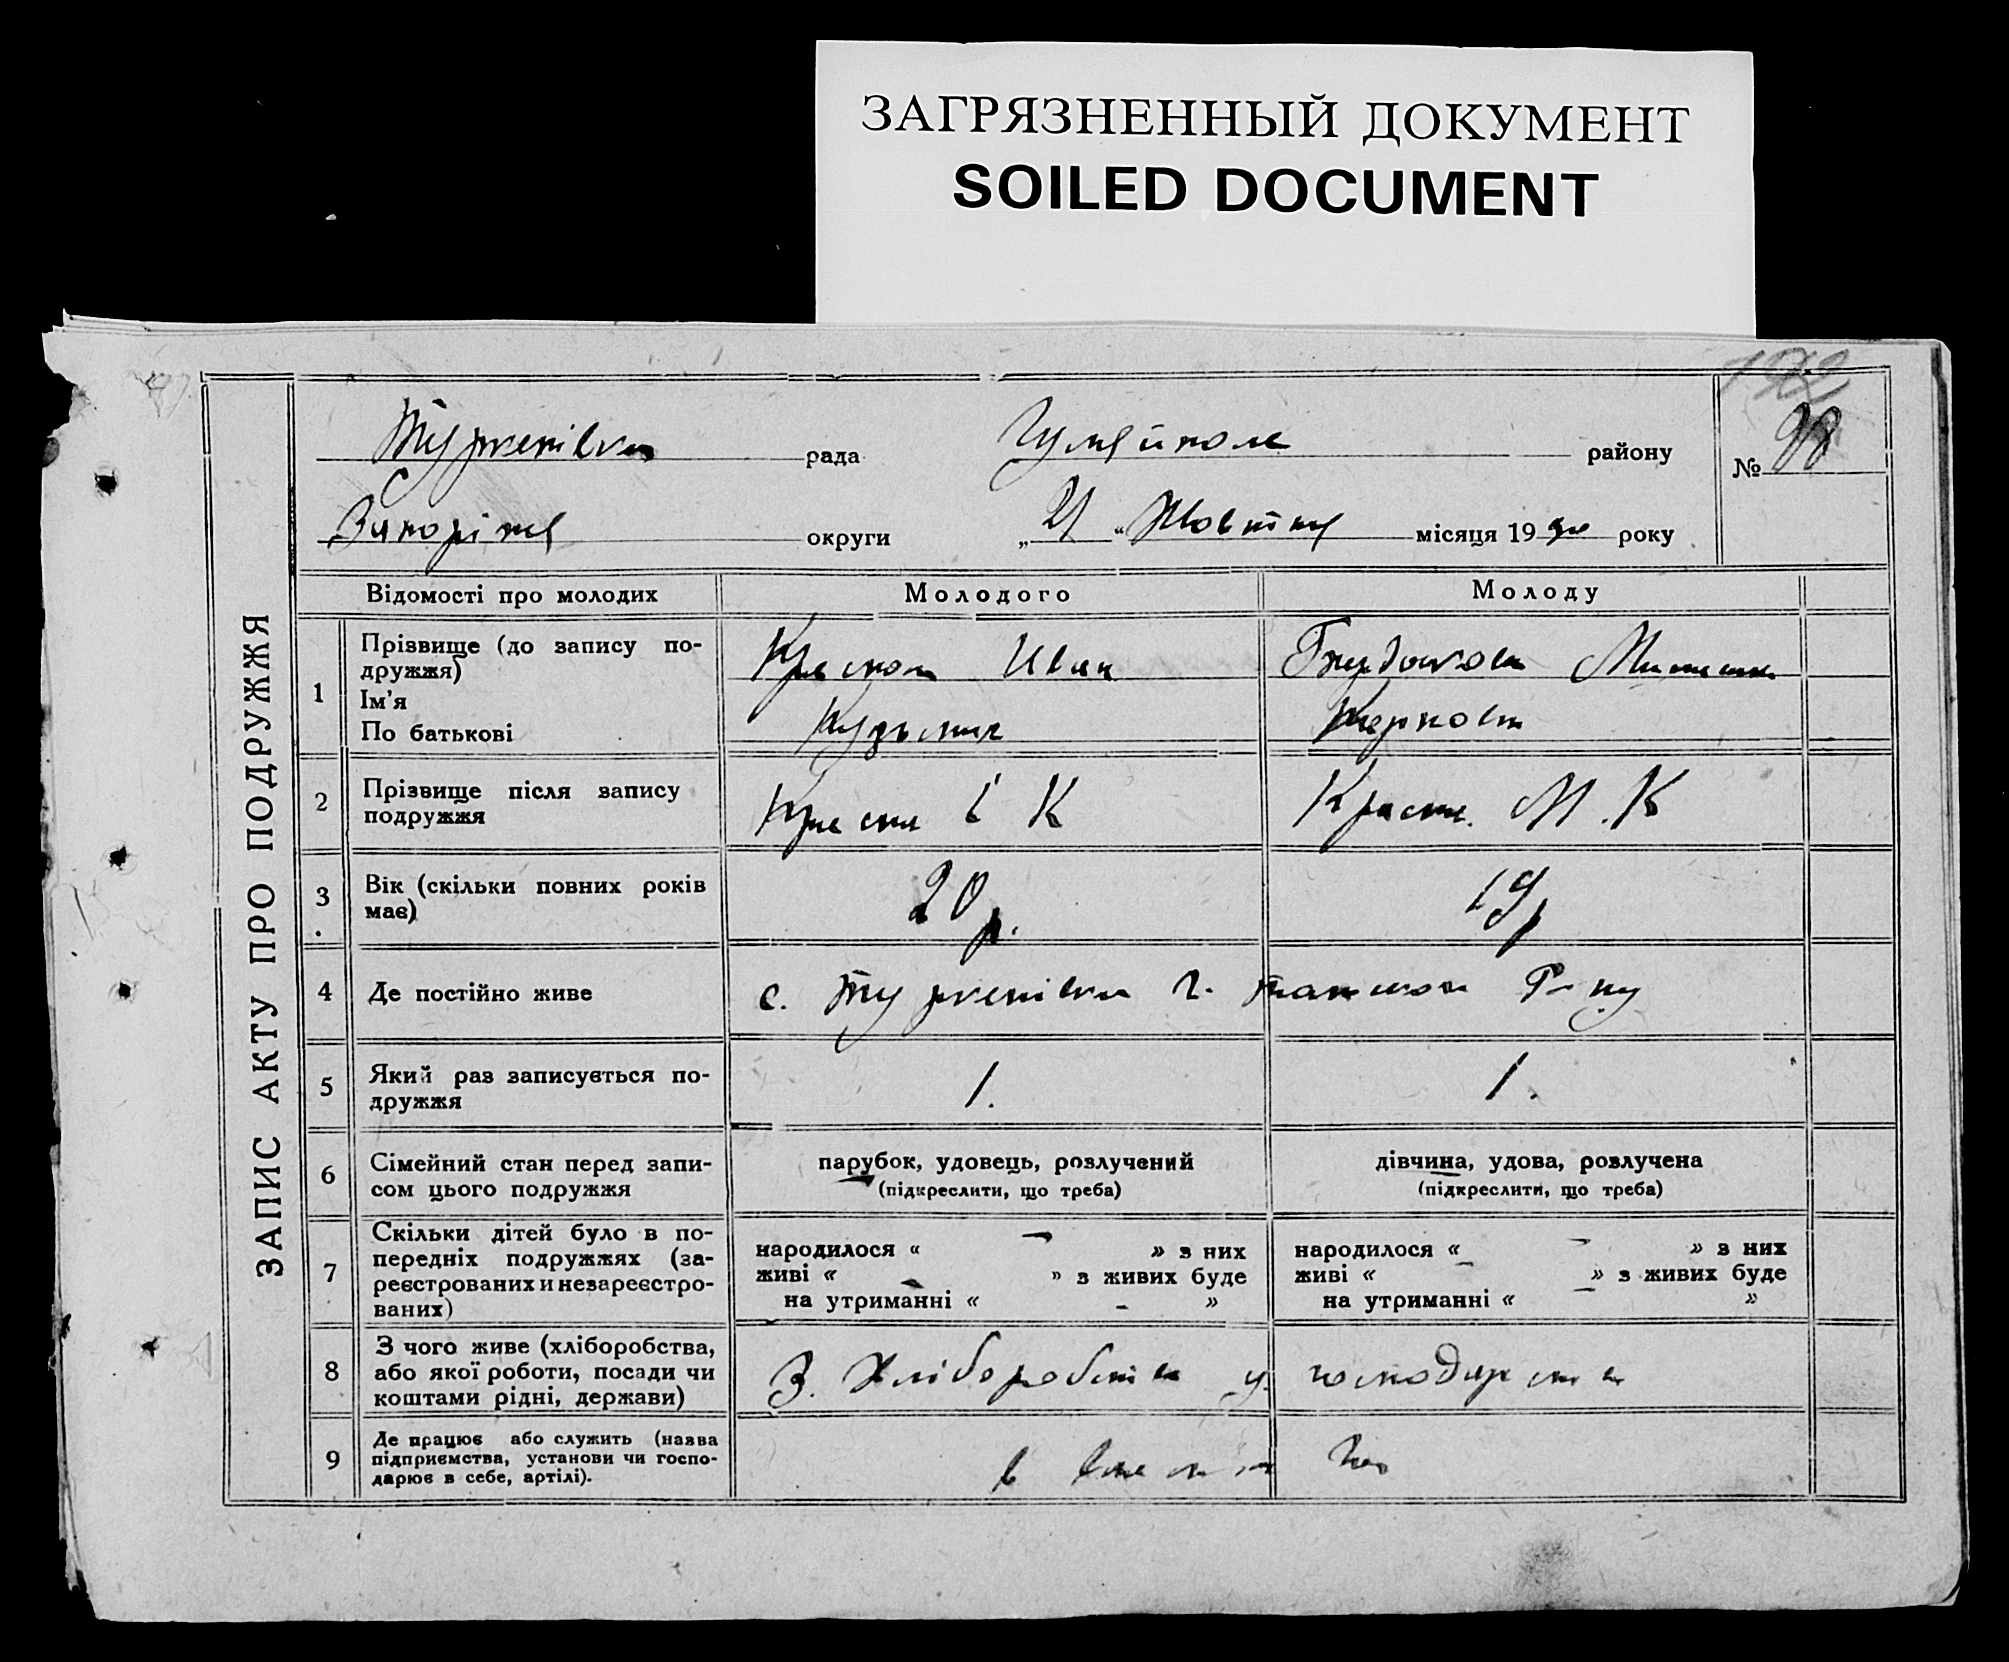 ЗАГРЯЗНЕННЫЙ ДОКУМЕНТ
SOILED DOCUMENT
ЗАПИС АКТУ ПРО ПОДРУЖЖЯ
Туркенівка рада Гуляйполе району № 98
Запоріжя округи „21“ Жовтня місяця 1930 року
Відомості про молодих Молодого Молоду
1 Прізвище (до запису по-
дружжя)
Ім'я
По батькові
Иван
Кузьмич
2 Прізвище після запису
подружжя
К
М. К
3 Вік (скільки повних років
має)
20 р. 19 р
4 Де постійно живе с. Туркенівка
5 Який раз записується по-
дружжя
1. 1.
6 Сімейний стан перед запи-
сом цього подружжя
парубок, удовець, розлучений
(підкреслити, що треба)
дівчина, удова, розлучена
(підкреслити, що треба)
7 Скільки дітей було в по-
передніх подружжях (за-
реєстрованих и незареєстро-
ваних)
народилося « — » з них
живі « — » з живих буде
на утриманні « — »
народилося « — » з них
живі « — » з живих буде
на утриманні « — »
8 З чого живе (хліборобства,
або якої роботи, посади чи
коштами рідні, держави)
З. Хліборобства у господарства
9 Де працює або служить (назва
підприємства, установи чи госпо-
дарює в себе, артілі).
в